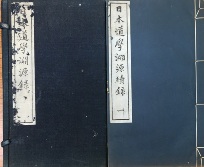 日本道學淵源續錄 一
道學淵源錄